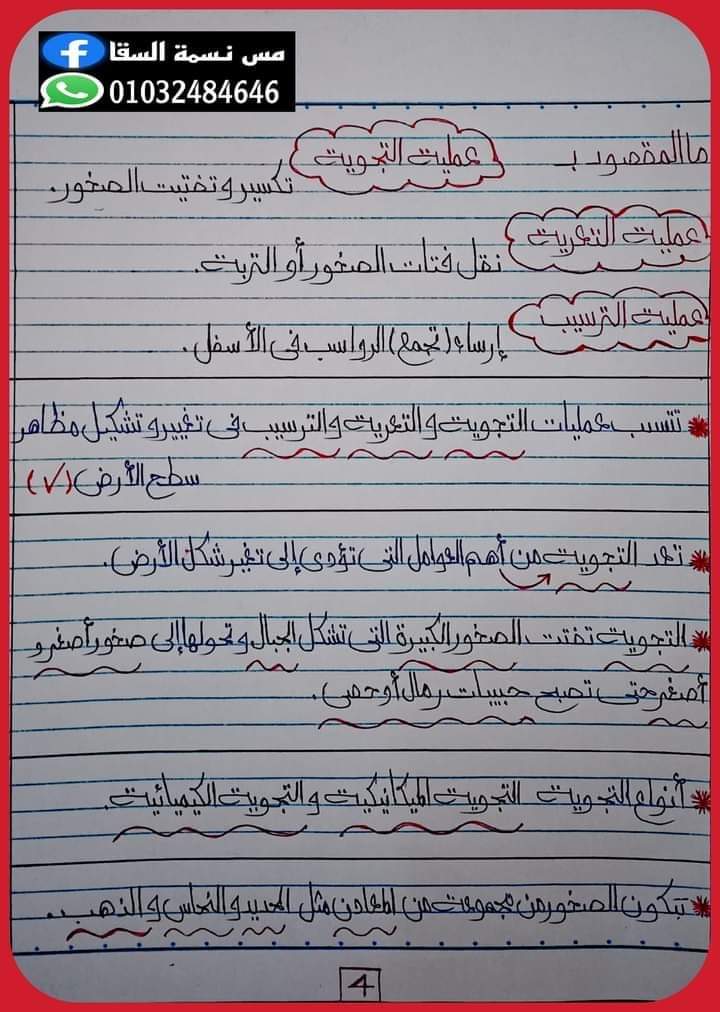 مس نسمة السقا
01032484646
ما المقصود بـ
عملية التجوية
تكسير وتفتيت الصخور.
عملية التعرية
نقل فتات الصخور أو التربة.
عملية الترسيب
إرساء (تجمع) الرواسب فى الأسفل.
تتسبب عمليات التجوية والتعرية والترسيب فى تغيير وتشكيل مظاهر
سطح الأرض (√)
تعد التجوية من أهم العوامل التى تؤدى إلى تغير شكل الأرض.
التجوية تفتت الصخور الكبيرة التى تشكل الجبال وتحولها إلى صخور أصغر و
أصغر حتى تصبح حبيبات رمال أو حصى.
أنواع التجوية التجوية الميكانيكية والتجوية الكيميائية.
تتكون الصخور من مجموعة من المعادن مثل الحديد والنحاس والذهب.
4